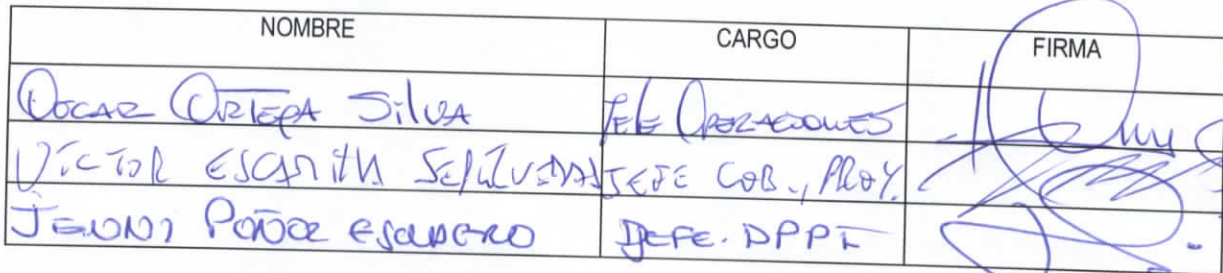 NOMBRE CARGO FIRMA
OSCAR ORTEGA SILVA JEFE OPERACIONES
VICTOR SEPÚLVEDA JEFE COB., PROY.
JENNY ESCUDERO JEFE. DPPT